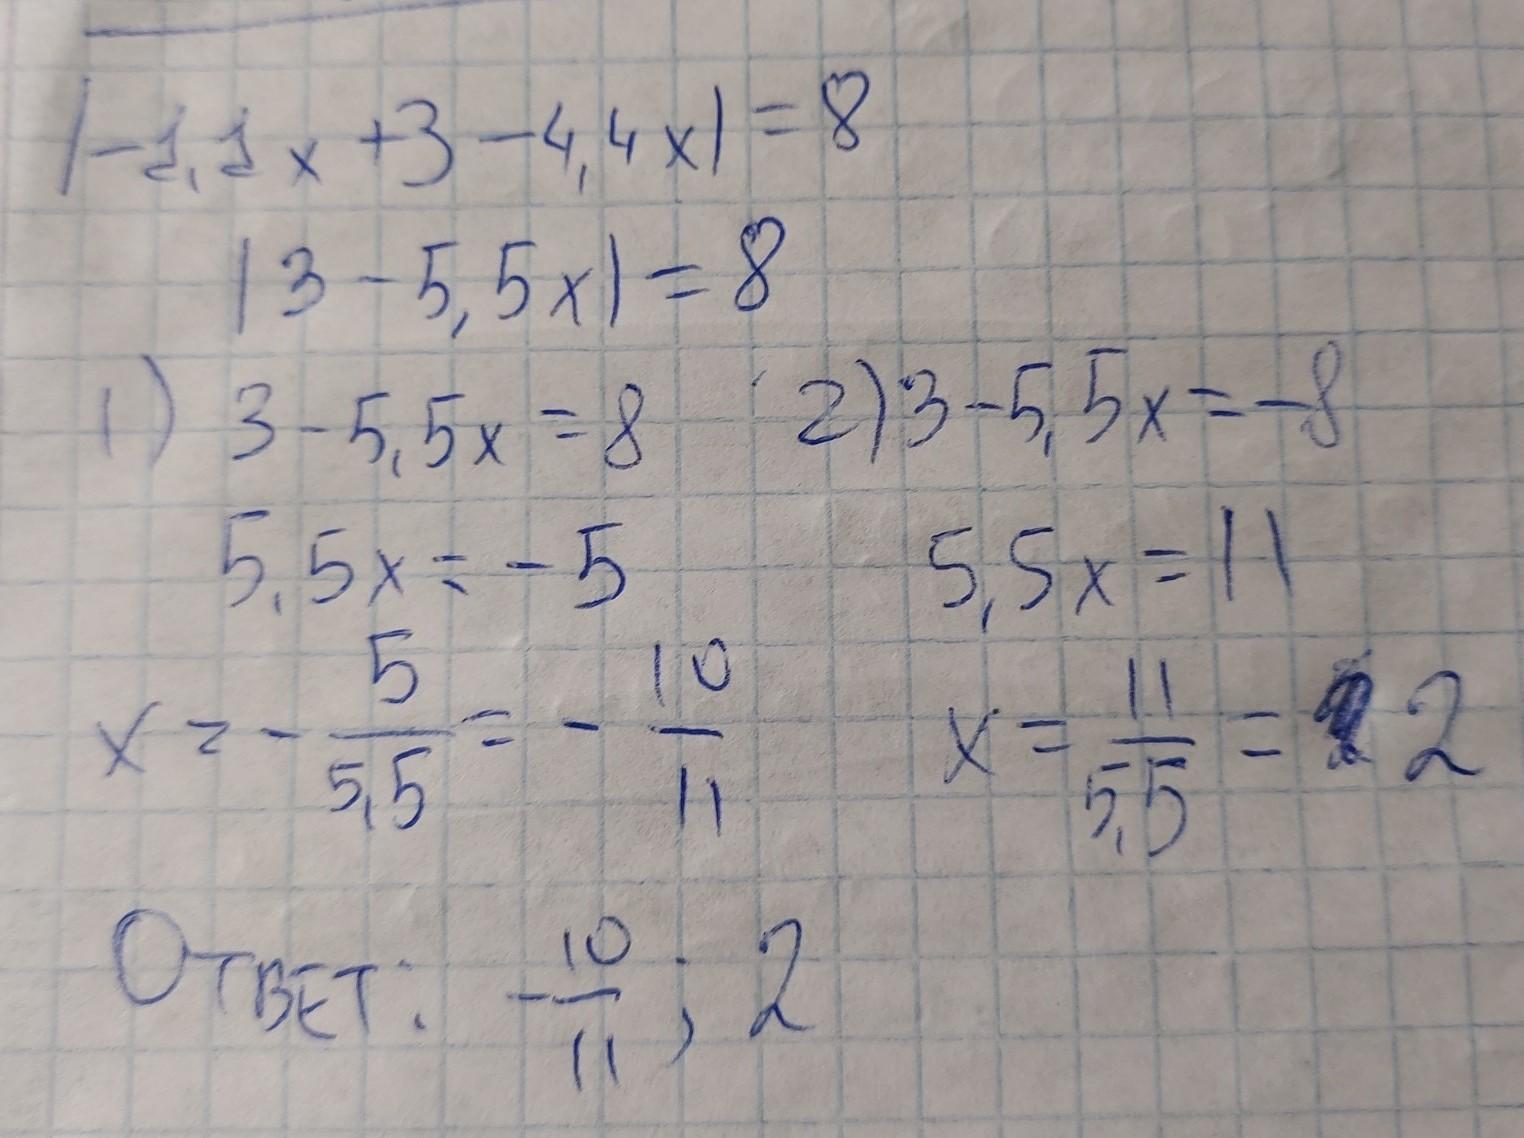 |-1,1x+3-4,4x|=8
|3-5,5x|=8
1) 3-5,5x=8 2) 3-5,5x=-8
5,5x=-5 5,5x=11
x=-5/5,5=-10/11 x=11/5,5=2
Ответ: -10/11; 2